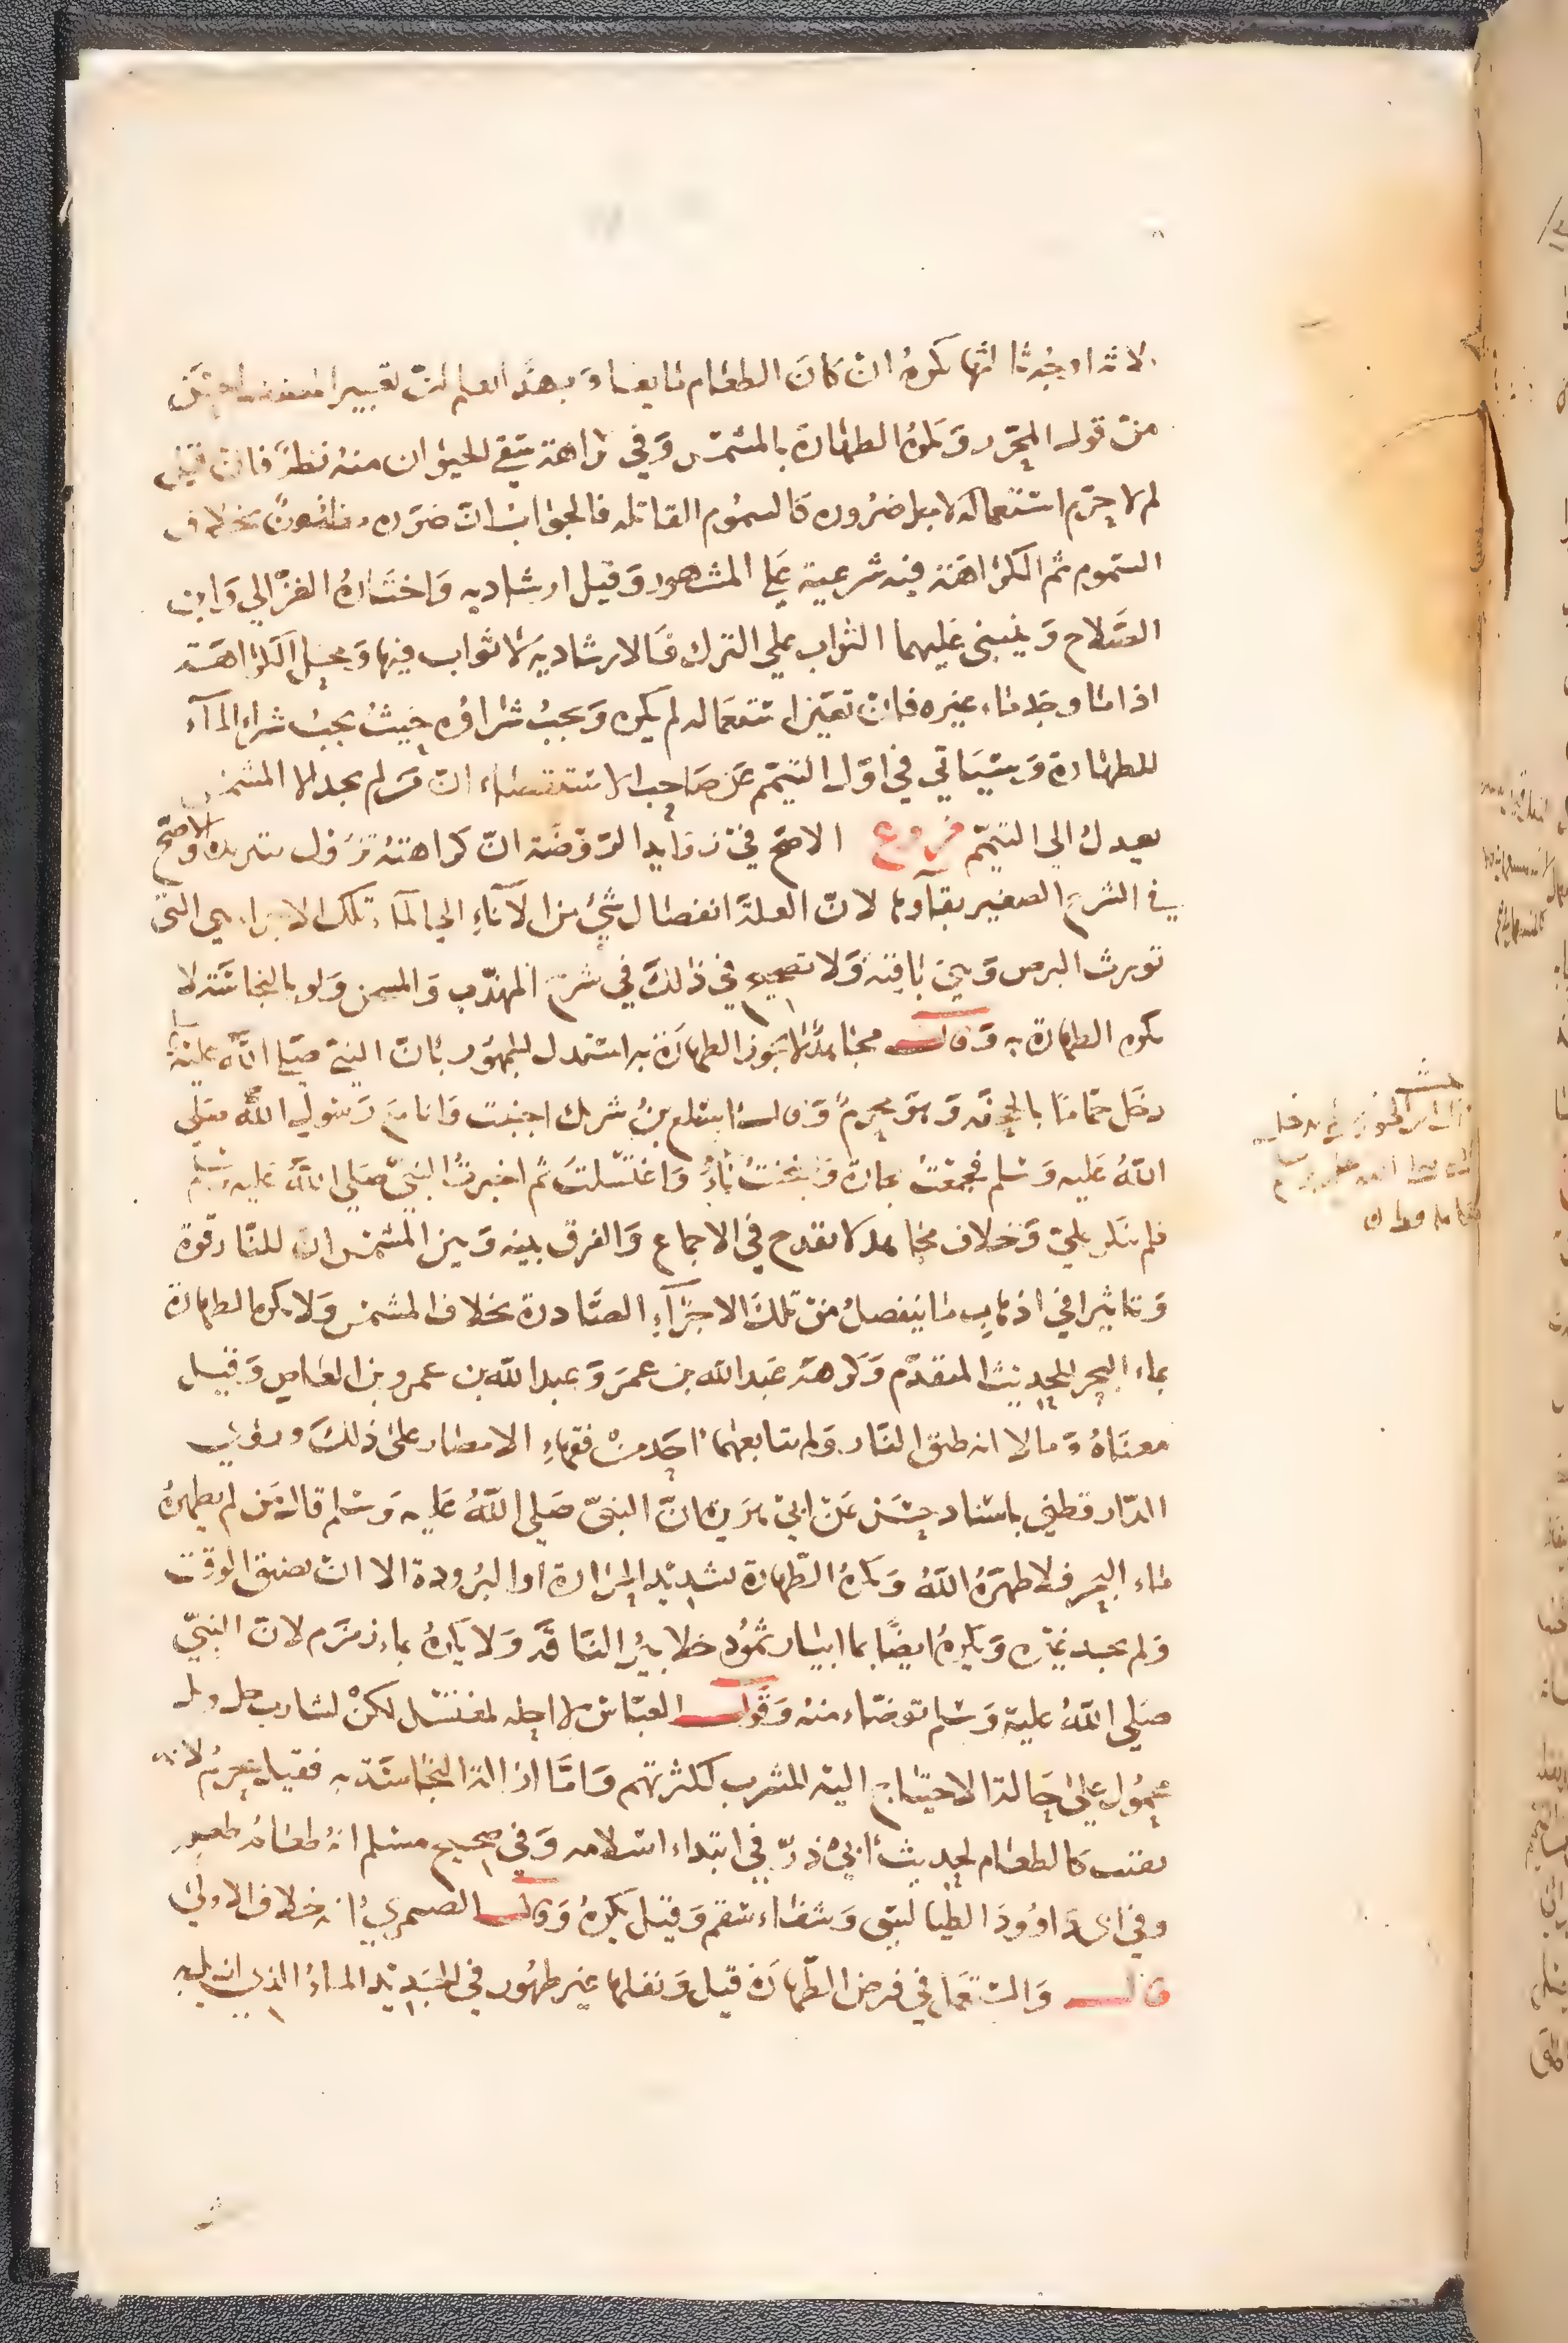 ثلاثة اوجه ثالثها يكره ان كان الطعام مايعا وبهذا تعلم ان تعبير المصنف احسن
من قول المحرر وتكره الطهارة بالمشمس وفي كراهة سقي الحيوان منه نظر فان قيل
لم لا حرم استعماله لا سيما بلا ضرورة كالسموم القاتلة فالجواب ان ضرره مظنون بخلاف
السموم ثم الكراهة فيه شرعية على المشهور وقيل ارشادية واختاره الغزالي وابن
الصلاح وينبني عليهما الثواب على الترك فالارشادية لا ثواب فيها ومحل الكراهة
اذا ما وجد ماء غيره فان تعين استعماله لم يكره ويجب شراؤه حيث يجب شراء الماء
للطهارة وسياتي في اول التيمم عن صاحب الاستقصاء ان من لم يجد الا المشمس
يعدل الى التيمم فروع الاصح في زوايد الروضة ان كراهته تزول بتبريده والاصح
في الشرح الصغير بقاوها لان العلة انفصال شيء من الاناء الى الماء وتلك الاجزاء هي التي
تورث البرص وهي باقية ولا تصحيح في ذلك في شرح المهذب والمسخن ولو بالنجاسة لا
تكره الطهارة به وقال مجاهد لا يجوز الطهارة به استدل الجمهور بان النبي صلى الله عليه وسلم
دخل حماما بالجحفة وهو محرم وقال اسلع بن شريك اجنبت وانا مع رسول الله صلى
الله عليه وسلم فجمعت حجارة وسخنت ماء واغتسلت ثم اخبرت النبي صلى الله عليه وسلم
فلم ينكر علي وخلاف مجاهد كما تقدح في الاجماع والفرق بينه وبين المشمس ان للنار قوة
وتاثيرا في اذهاب ما ينفصل من تلك الاجزاء الصادرة بخلاف المشمس ولا يكره الطهارة
بماء البحر للحديث المتقدم وكرهه عبد الله بن عمر وعبد الله بن عمرو بن العاص وقيل
معناه وما لا انه طبق النار ولم يتابعهما احد من فقهاء الامصار على ذلك وروى
الدارقطني باسناد حسن عن ابي هريرة ان النبي صلى الله عليه وسلم قال من لم يطهره
ماء البحر فلا طهره الله وتكره الطهارة بشديد الحرارة او البرودة الا ان يضيق الوقت
ولم يجد غيره ويكره ايضا بما ابيار ثمود خلا بير الناقة ولا يكره بماء زمزم لان النبي
صلى الله عليه وسلم توضاء منه وقول العباس لا احله لمغتسل لكن لشارب حل وبل
محمول على حالة الاحتياج اليه للشرب لكثرتهم واما ازالة النجاسة به فقيل يحرم لانه
يقتات كالطعام لحديث ابي ذر في ابتداء اسلامه وفي صحيح مسلم انه طعام طعم
وفي ابى داوود الطيالسي وشفاء سقم وقيل يكره وقال الصيمري انه خلاف الاولى
قال والمستعمل في فرض الطهارة قيل ونفلها غير طهور في الجديد الماء الذي ازيل به